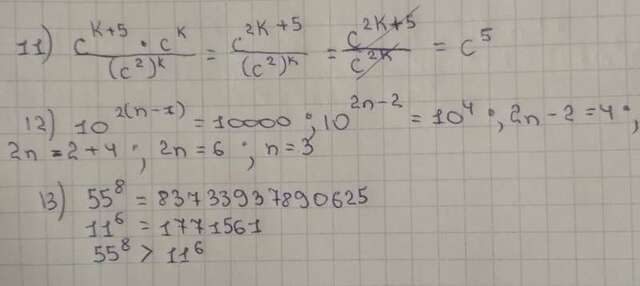 11) (c^(k+5) · c^k)/(c²)^k = c^(2k+5)/(c²)^k = c^(2k+5)/c^(2k) = c⁵
12) 10^(2(n-1)) = 10000 ; 10^(2n-2) = 10⁴ ; 2n-2=4 ;
2n = 2+4 ; 2n=6 ; n=3
13) 55⁸ = 837339378​90625
11⁶ = 1771561
55⁸ > 11⁶